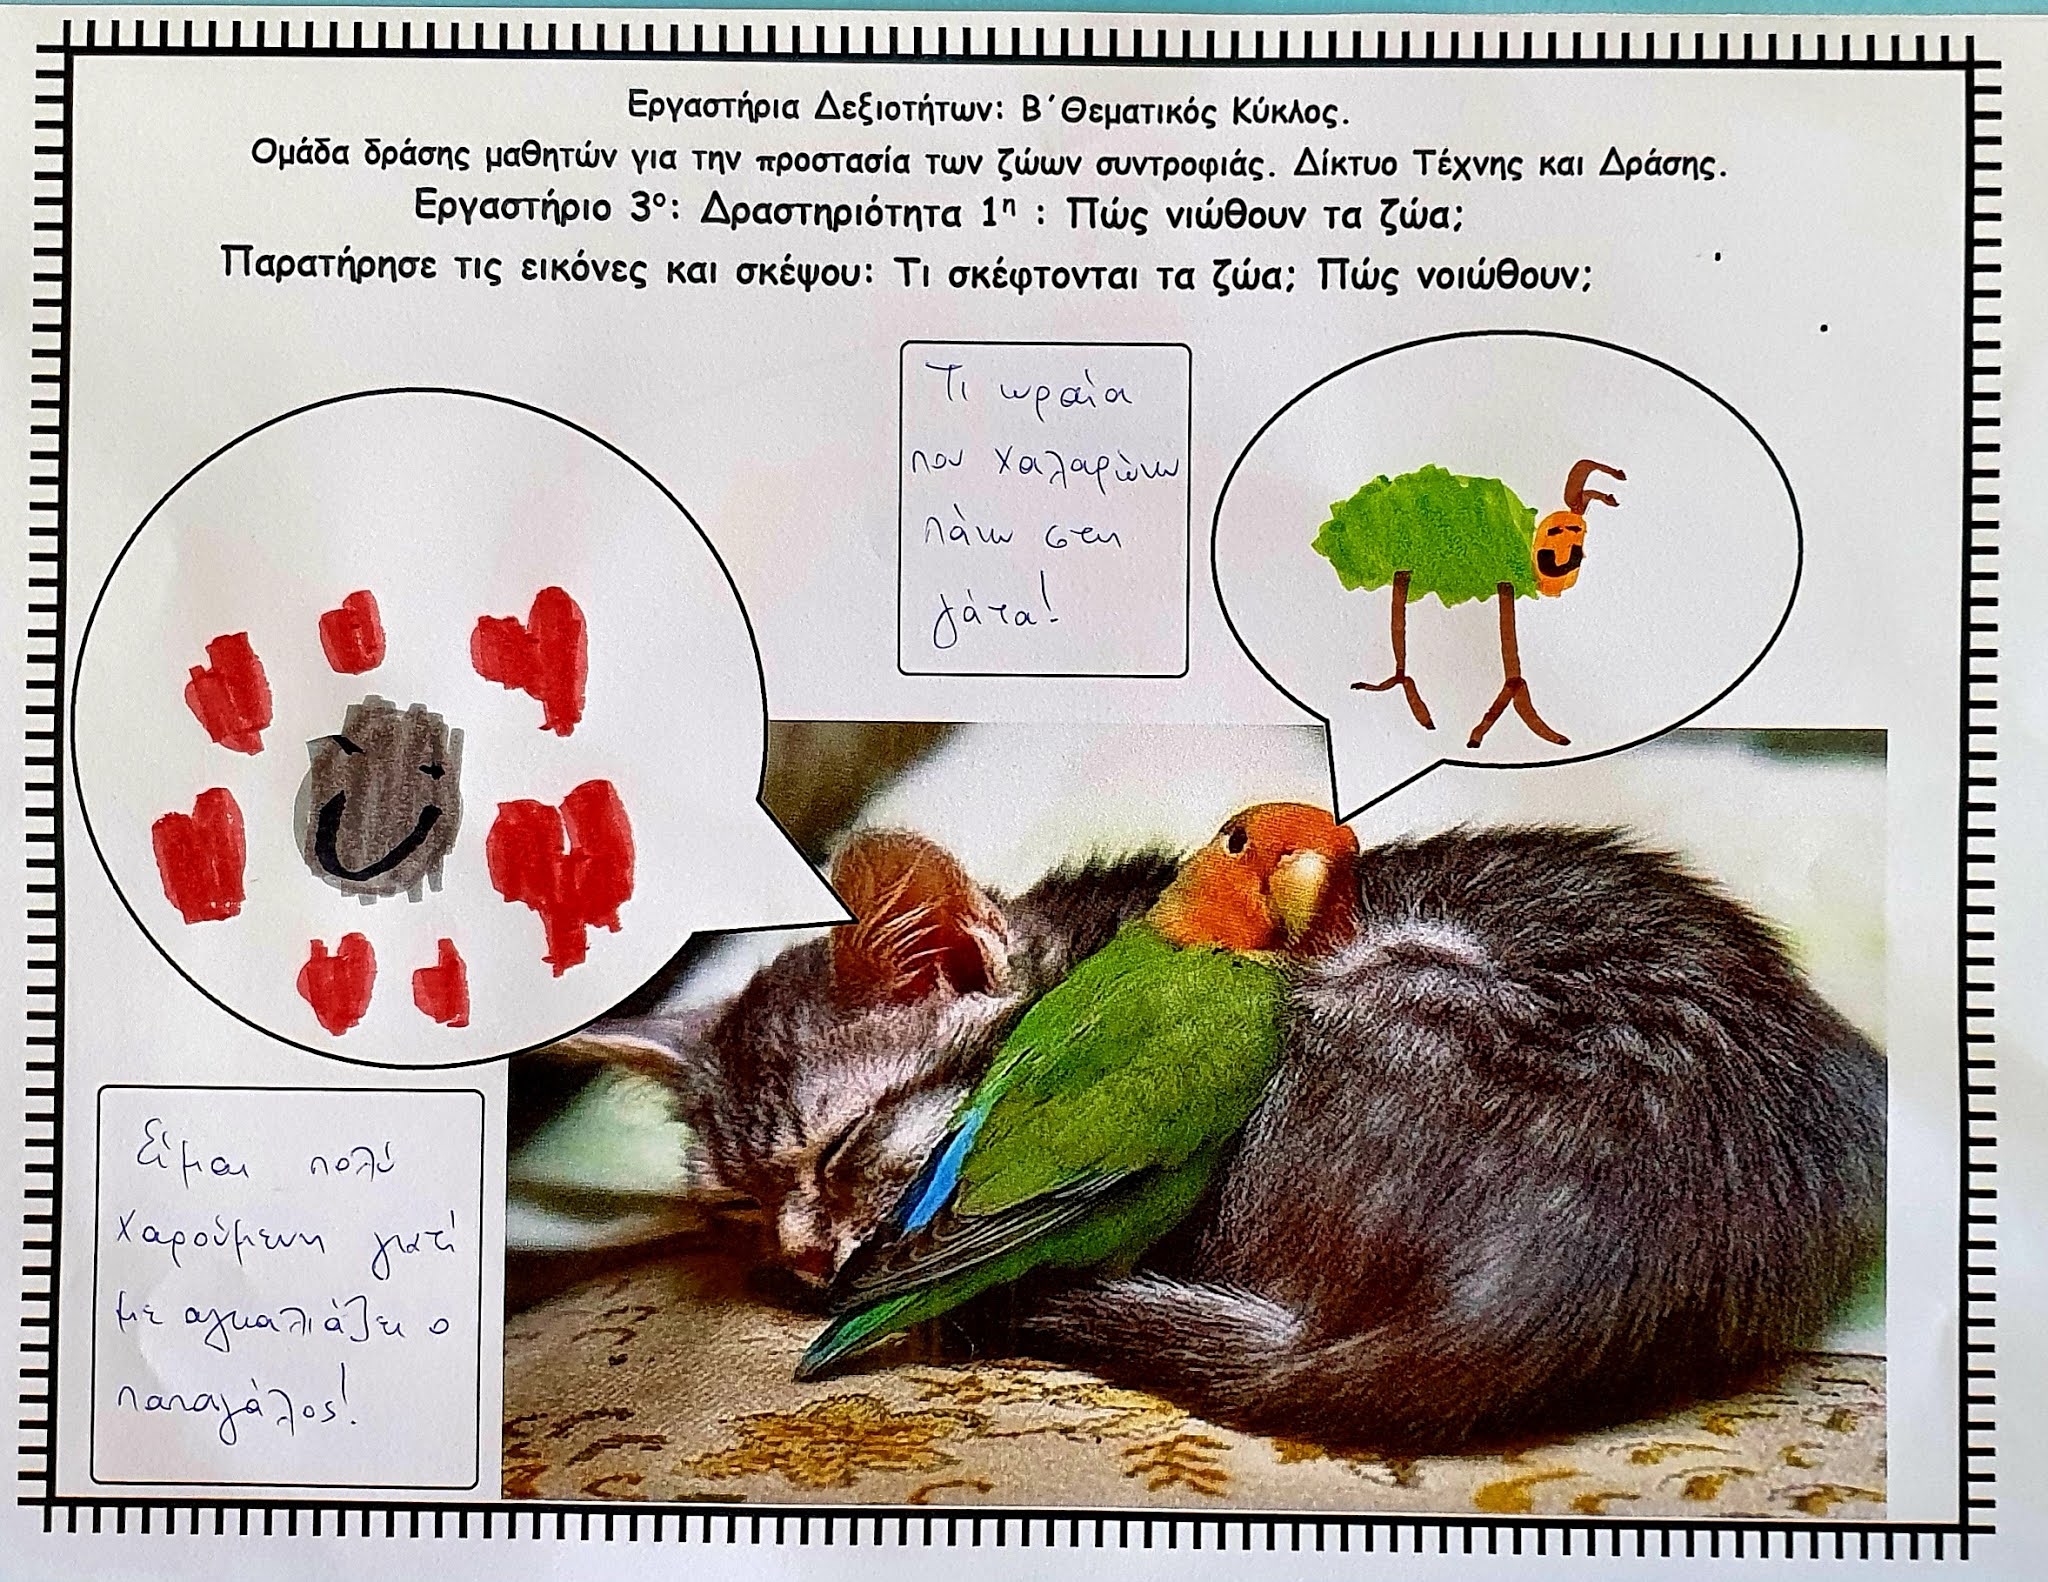 Εργαστήρια Δεξιοτήτων: Β΄Θεματικός Κύκλος.
Ομάδα δράσης μαθητών για την προστασία των ζώων συντροφιάς. Δίκτυο Τέχνης και Δράσης.
Εργαστήριο 3ο: Δραστηριότητα 1η : Πώς νιώθουν τα ζώα;
Παρατήρησε τις εικόνες και σκέψου: Τι σκέφτονται τα ζώα; Πώς νοιώθουν;
Τι ωραία
που χαλαρώνω
πάνω στη
γάτα!
Είμαι πολύ
χαρούμενη γιατί
με αγκαλιάζει ο
παπαγάλος!